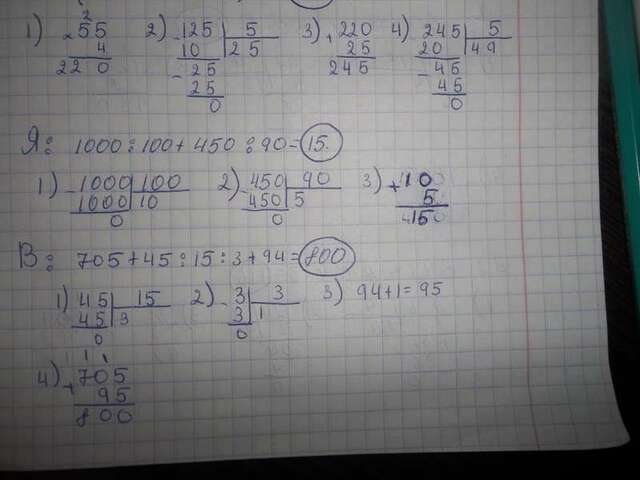 1) × 55 2) - 125 | 5 3) + 220 4) - 245 | 5
4 10 | 25 25 20 | 49
220 - 25 245 - 45
25 45
0 0
Я: 1000:100+450:90=15
1) - 1000 | 100 2) - 450 | 90 3) + 10
1000 | 10 450 | 5 5
0 0 15
В: 705+45:15:3+94=800
1) 45 | 15 2) - 3 | 3 3) 94+1=95
45 | 3 3 | 1
0 0
4) + 705
95
800